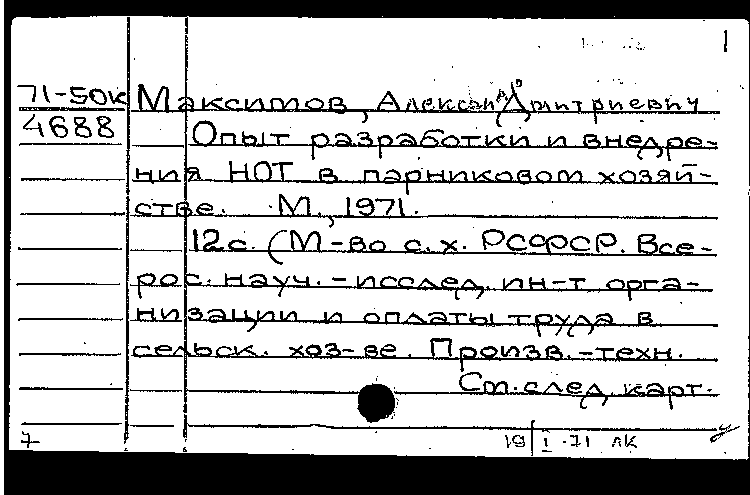 1
71-50к Максимов, Алексей Дмитриевич
4688 Опыт разработки и внедре-
ния НОТ в парниковом хозяй-
стве. М., 1971.
12с. (М-во с.х. РСФСР. Все-
рос. науч.-исслед. ин-т орга-
низации и оплаты труда в
сельск. хоз-ве. Произв.-техн.
См. след. карт.
19/I-71 ЛК